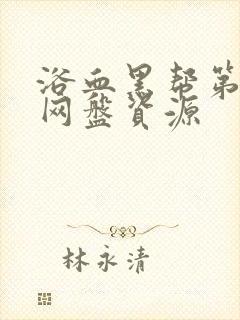 浴血黑帮第
网盘资源
林永清